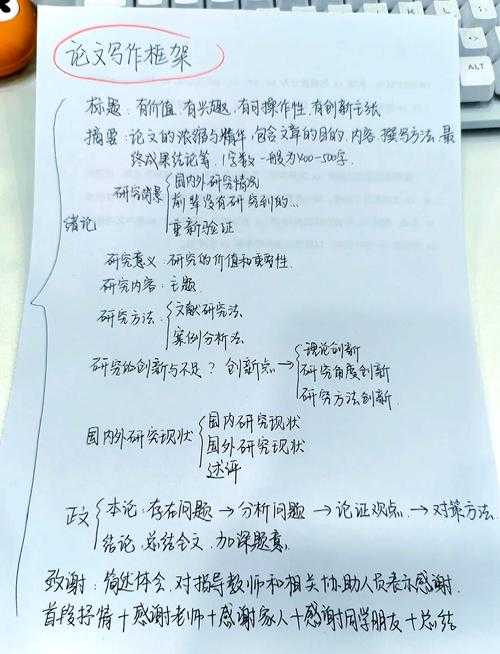 论文写作框架
标题：有价值、有兴趣、有可操作性、有创新主张
摘要：论文的浓缩与精华，包含文章的目的、内容、撰写方法、最
终成果结论等，字数一般为400-500字。
绪论
研究背景
国内外研究情况
前辈没有研究到的...
重新验证
研究意义：研究的价值和重要性.
研究内容：主题
研究方法：
文献研究法
案例分析法
研究的创新与不足？创新点→
理论创新
研究角度创新
研究方法创新
国内外研究现状
国内研究现状
国外研究现状
述评
正文
本论：存在问题→分析问题→论证观点→对策方法
结论：总结全文，加深题意
致谢：简述体会，对指导教师和相关协助人员表示感谢.
首段抒情+感谢老师+感谢家人+感谢同学朋友+总结
ALT